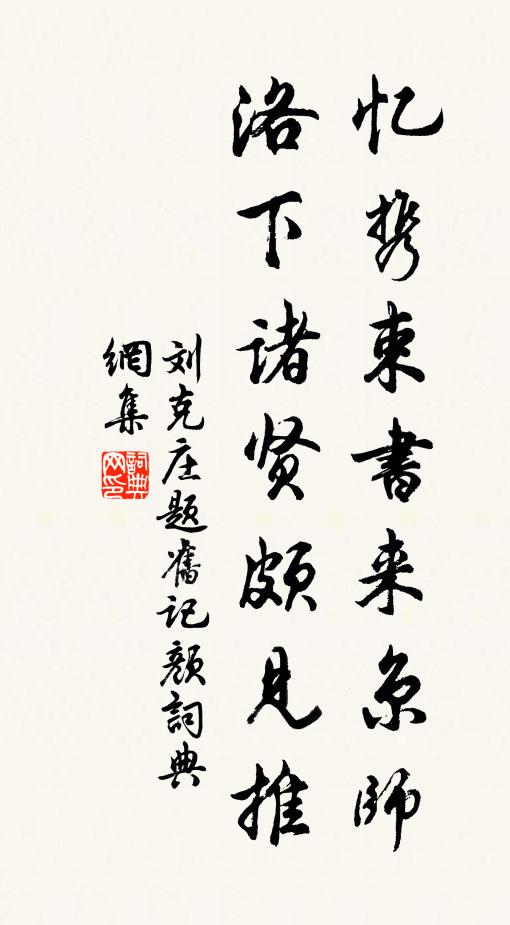 忆携束书来京师
洛下诸贤颇见推
刘克庄题旧记颜词典
網集
詞典網印